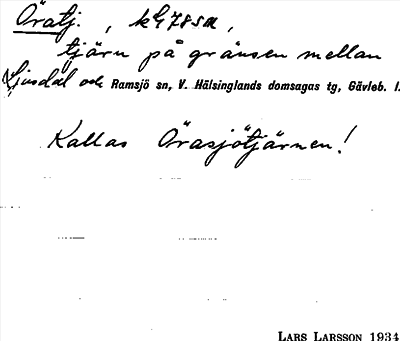 Öratj., kG78SÖ,
tjärn på gränsen mellan
Ljusdal och Ramsjö sn, V. Hälsinglands domsagas tg, Gävleb. l.
Kallas Örasjötjärnen!
LARS LARSSON 1934